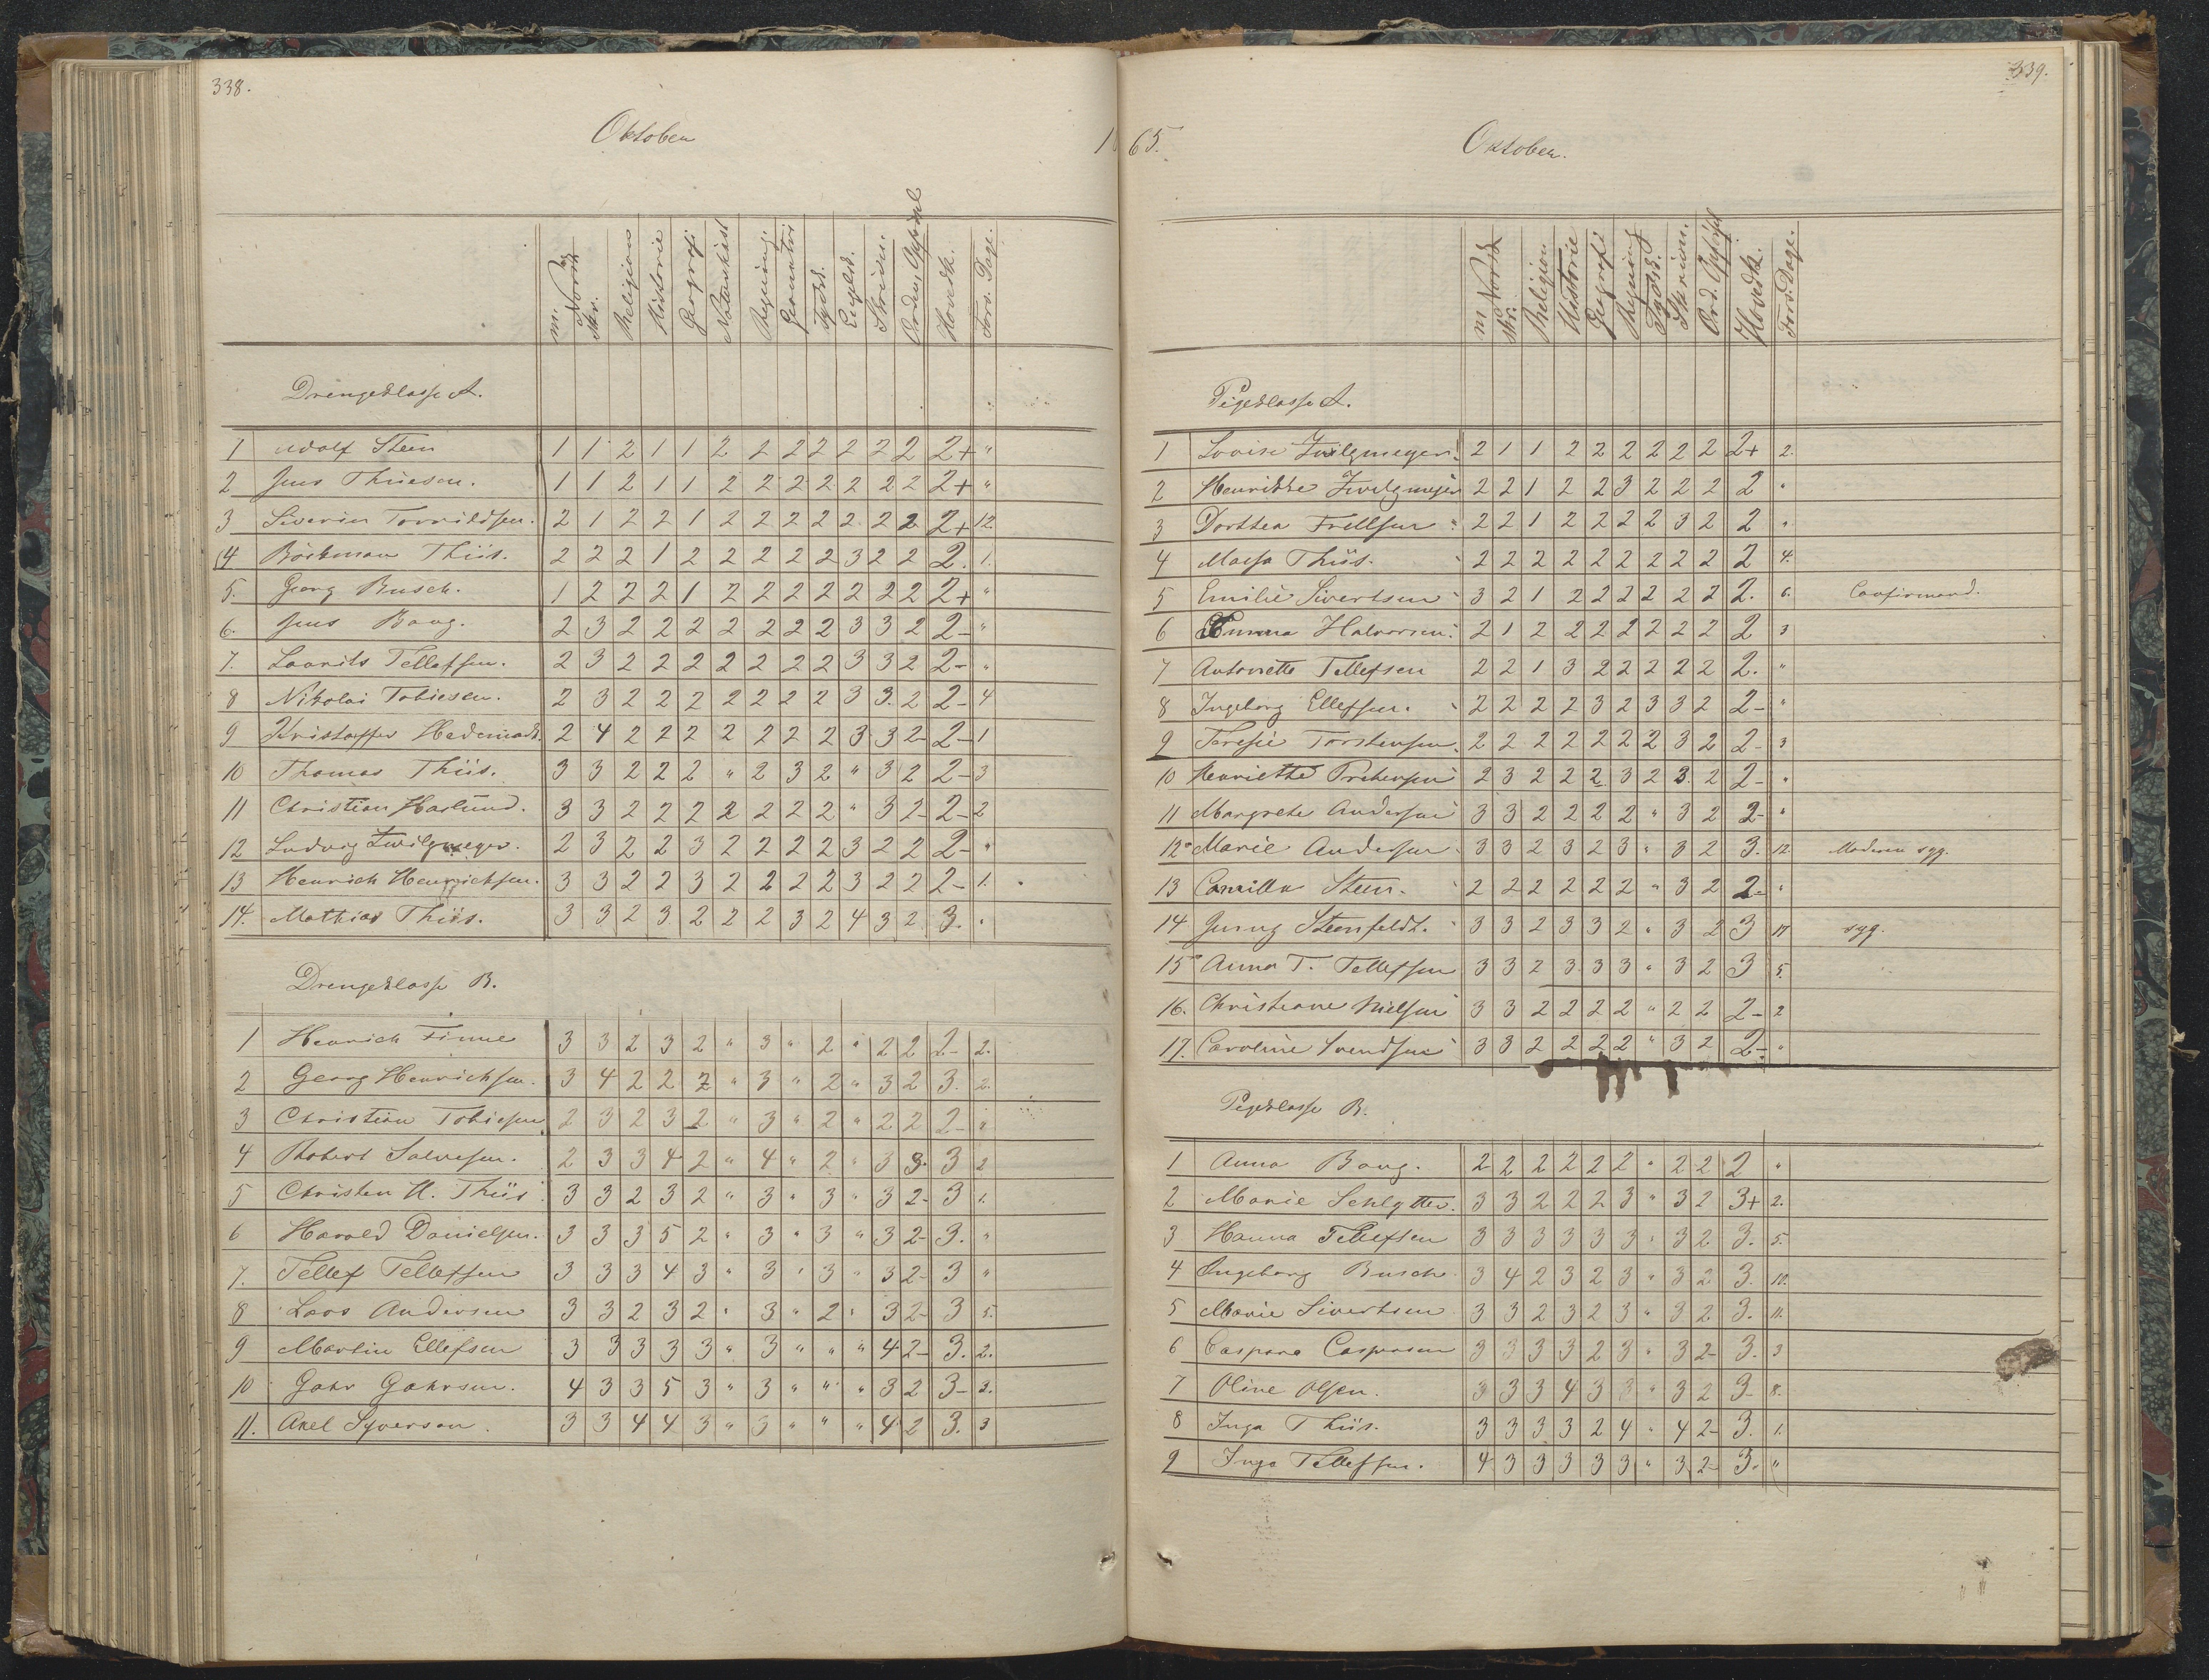 338.
Oktober
m. Norsk Skr. Religion Historie Geografi Naturhist Regning Geometri Tydsk. Engelsk. Skrivn. Orden, Opførsel Hovedk. Fors. Dage.
Drengeklasse A.
1 Adolf Steen 1 1 2 1 1 2 2 2 2 2 2 2 2+ "
2 Jens Thiesen. 1 1 2 1 1 2 2 2 2 2 2 2 2+ "
3 Severin Torvildsen. 2 1 2 2 1 2 2 2 2 2 2 2 2+ 12.
4 Böckman Thiis. 2 2 2 1 2 2 2 2 2 3 2 2 2. 1.
5. Georg Busch. 1 2 2 2 1 2 2 2 2 2 2 2 2+ "
6. Jens Bang. 2 3 2 2 2 2 2 2 2 3 3 2 2- "
7. Laurits Tellefsen. 2 3 2 2 2 2 2 2 2 3 3 2 2- "
8 Nikolai Tobiesen. 2 3 2 2 2 2 2 2 2 3 3. 2 2- 4
9 Kristoffer Hedemark. 2 4 2 2 2 2 2 2 2 3 3 2- 2- 1
10 Thomas Thiis. 3 3 2 2 2 " 2 3 2 " 3 2 2- 3
11 Christian Harlund. 3 3 2 2 2 2 2 2 2 " 3 2- 2- 2
12 Ludvig Zwilgmeyer. 2 3 2 2 3 2 2 2 2 3 2 2 2- "
13 Henrich Henrichsen. 3 3 2 2 3 2 2 2 2 3 2 2 2- 1.
14. Mathias Thiis. 3 3 2 3 2 2 2 3 2 4 3 2 3. "
Drengeklasse B.
1 Henrich Finne 3 3 2 3 2 " 3 " 2 " 2 2 2- 2.
2 Georg Henrichsen. 3 4 2 2 2 " 3 " 2 " 3 2 3. 2.
3 Christian Tobiesen 2 3 2 3 2 " 3 " 2 " 2 2 2- "
4 Robert Salvesen. 2 3 3 4 2 " 4 " 2 " 3 3. 3 2
5 Christen H. Thiis 3 3 2 3 2 " 3 " 3 " 3 2- 3 1.
6 Harald Danielsen. 3 3 3 5 2 " 3 " 3 " 3 2- 3. "
7. Tellef Tellefsen 3 3 3 4 3 " 3 " 3 " 3 2- 3 "
8 Lars Andersen 3 3 2 3 2 " 3 " 2 " 3 2- 3 5.
9 Martin Ellefsen 3 3 3 3 3 " 3 " " " 4 2- 3. 2.
10 Gahr Gahrsen. 4 3 3 5 3 " 3 " " " 3 2 3- 2.
11. Axel Syversen. 3 3 4 4 3 " 3 " " " 4 2 3. 3
339.
1 65. Oktober.
m Norsk skr. Religion Historie Geografi Regning Tydsk. Skrivn. Ord. Opførsel Hovedk. Fors. Dage.
Pigeklasse A.
1 Lovise Zwilgmeyer. 2 1 1 2 2 2 2 2 2 2+ 2.
2 Henrikke Zwilgmeyer 2 2 1 2 2 3 2 2 2 2 "
3 Dorthea Frellsen 2 2 1 2 2 2 2 3 2 2 "
4 Maesa Thiis. 2 2 2 2 2 2 2 2 2 2 4.
5 Emilie Sivertsen 3 2 1 2 2 2 2 2 2 2. 6. Confirmand.
6 Emma Halvorsen. 2 1 2 2 2 2 2 2 2 2 3
7 Antonette Tellefsen 2 2 1 3 2 2 2 2 2 2. "
8 Ingeborg Ellefsen. 2 2 2 2 3 2 3 3 2 2- "
9 Teresie Torstensen. 2 2 2 2 2 2 2 3 2 2- 3
10 Henriette Pretersen 2 3 2 2 2 3 2 3. 2 2- "
11 Margrete Andersen 3 3 2 2 2 2 " 3 2 2- "
12 Marie Andersen 3 3 2 3 2 3 " 3 2 3. 12. Moderen syg.
13 Camilla Steen. 2 2 2 2 2 2 " 3 2 2- "
14 Jenny Steenfeldt. 3 3 2 3 3 2 " 3 2 3 17 syg.
15 Anna T. Tellefsen 3 3 2 3 3 3 " 3 2 3 5.
16. Christiane Nielsen 3 3 2 2 2 2 " 2 2 2- 2
17. Caroline Svendsen 3 3 2 2 2 2 " 3 2 2- "
Pigeklasse B.
1 Anna Bang. 2 2 2 2 2 2 " 2 2 2 "
2 Marie Schlytter. 3 3 2 2 2 3 " 3 2 3+ 2.
3 Hanna Tellefsen 3 3 3 3 3 3 " 3 2 3. 5.
4 Ingeborg Busch 3 4 2 3 2 3 " 3 2 3. 10.
5 Marie Sivertsen 3 3 2 3 2 3 " 3 2 3. 11.
6 Caspara Caspersen 3 3 3 3 2 3 " 3 2- 3. 3
7 Oline Olsen. 3 3 3 4 3 3 " 3 2 3- 8.
8 Inga Thiis. 3 3 3 3 2 4 " 4 2- 3. 1.
9 Inga Tellefsen. 4 3 3 3 3 3 " 3 2- 3. "